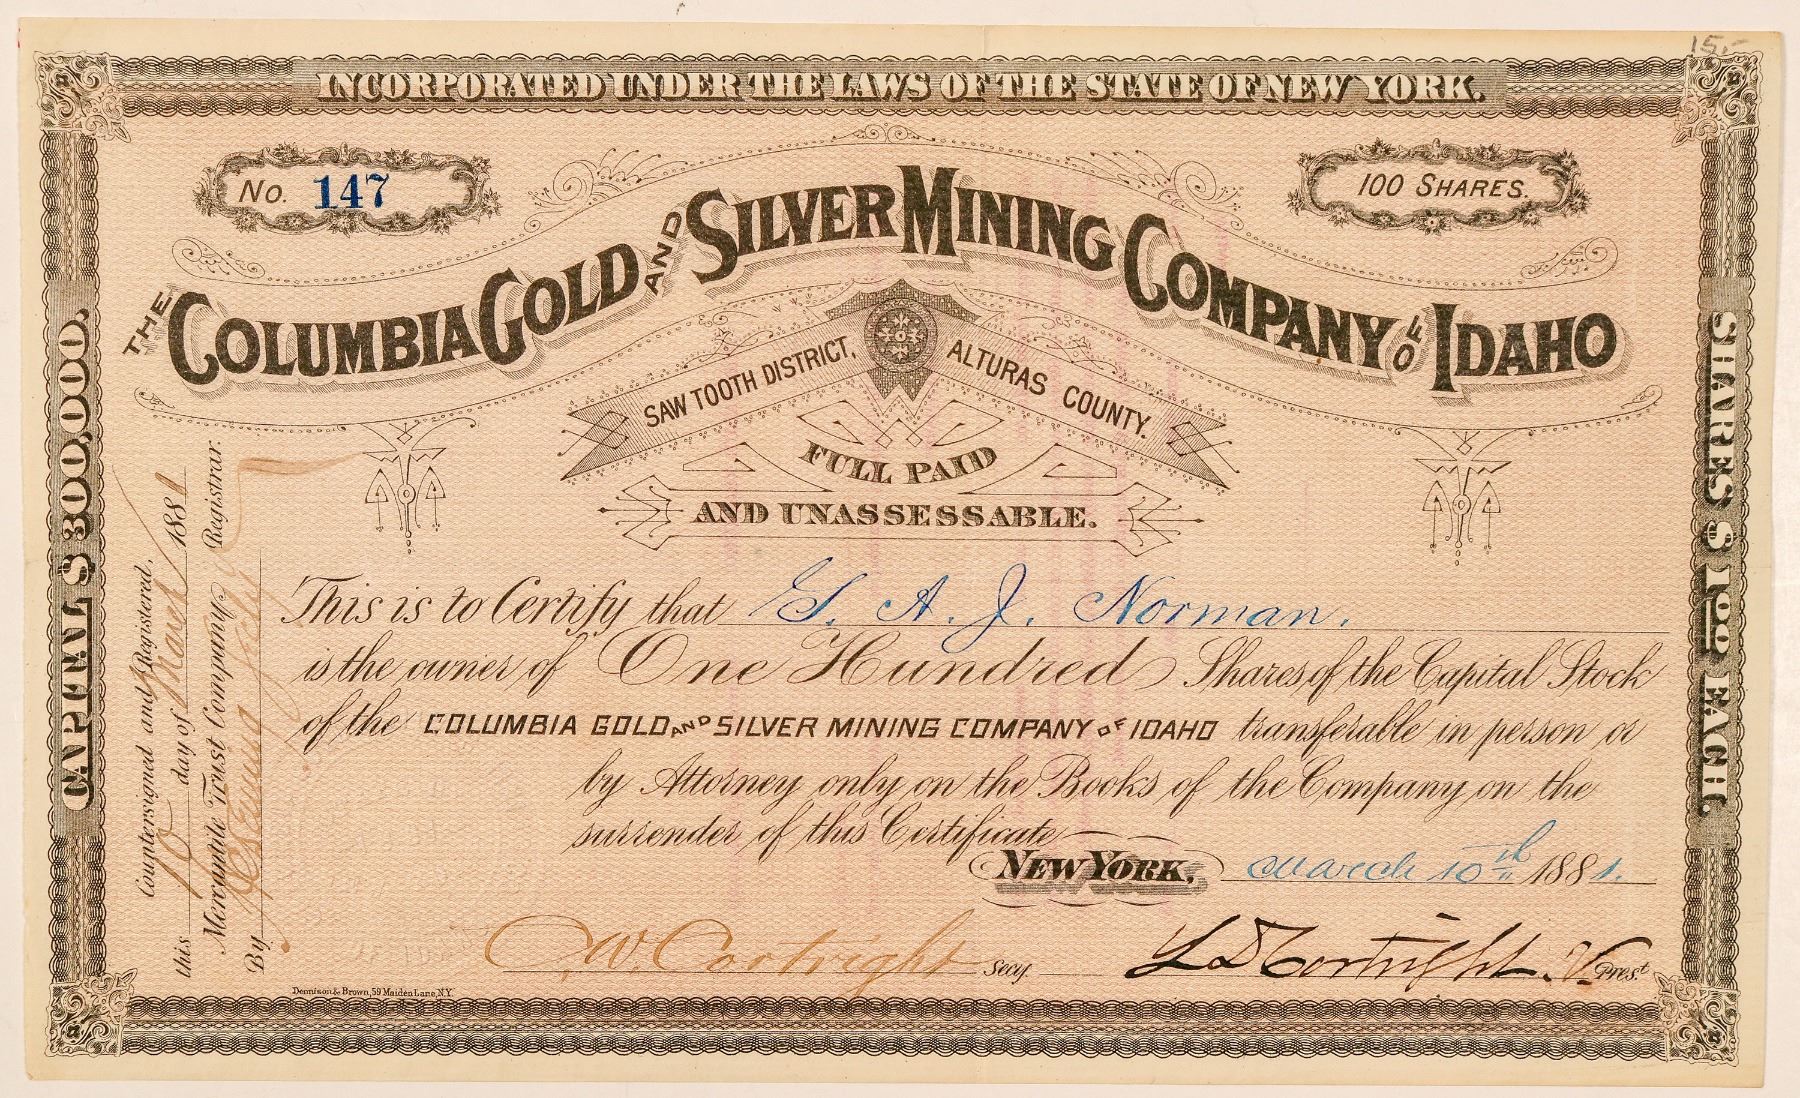 15.-
INCORPORATED UNDER THE LAWS OF THE STATE OF NEW YORK.
No. 147
100 SHARES.
THE COLUMBIA GOLD AND SILVER MINING COMPANY OF IDAHO
SAW TOOTH DISTRICT, ALTURAS COUNTY.
FULL PAID
AND UNASSESSABLE.
CAPITAL $300,000.
SHARES $100 EACH.
Countersigned and Registered,
this 10 day of March 1881
Mercantile Trust Company Registrar.
By Secty
This is to Certify that G. A. J. Norman.
is the owner of One Hundred Shares of the Capital Stock
of the COLUMBIA GOLD AND SILVER MINING COMPANY OF IDAHO transferable in person or
by Attorney only on the Books of the Company on the
surrender of this Certificate
NEW YORK, March 10th 1881.
C. W. Cortright Secy.
L D Cortright. V. Prest
Dennison & Brown, 59 Maiden Lane, N.Y.